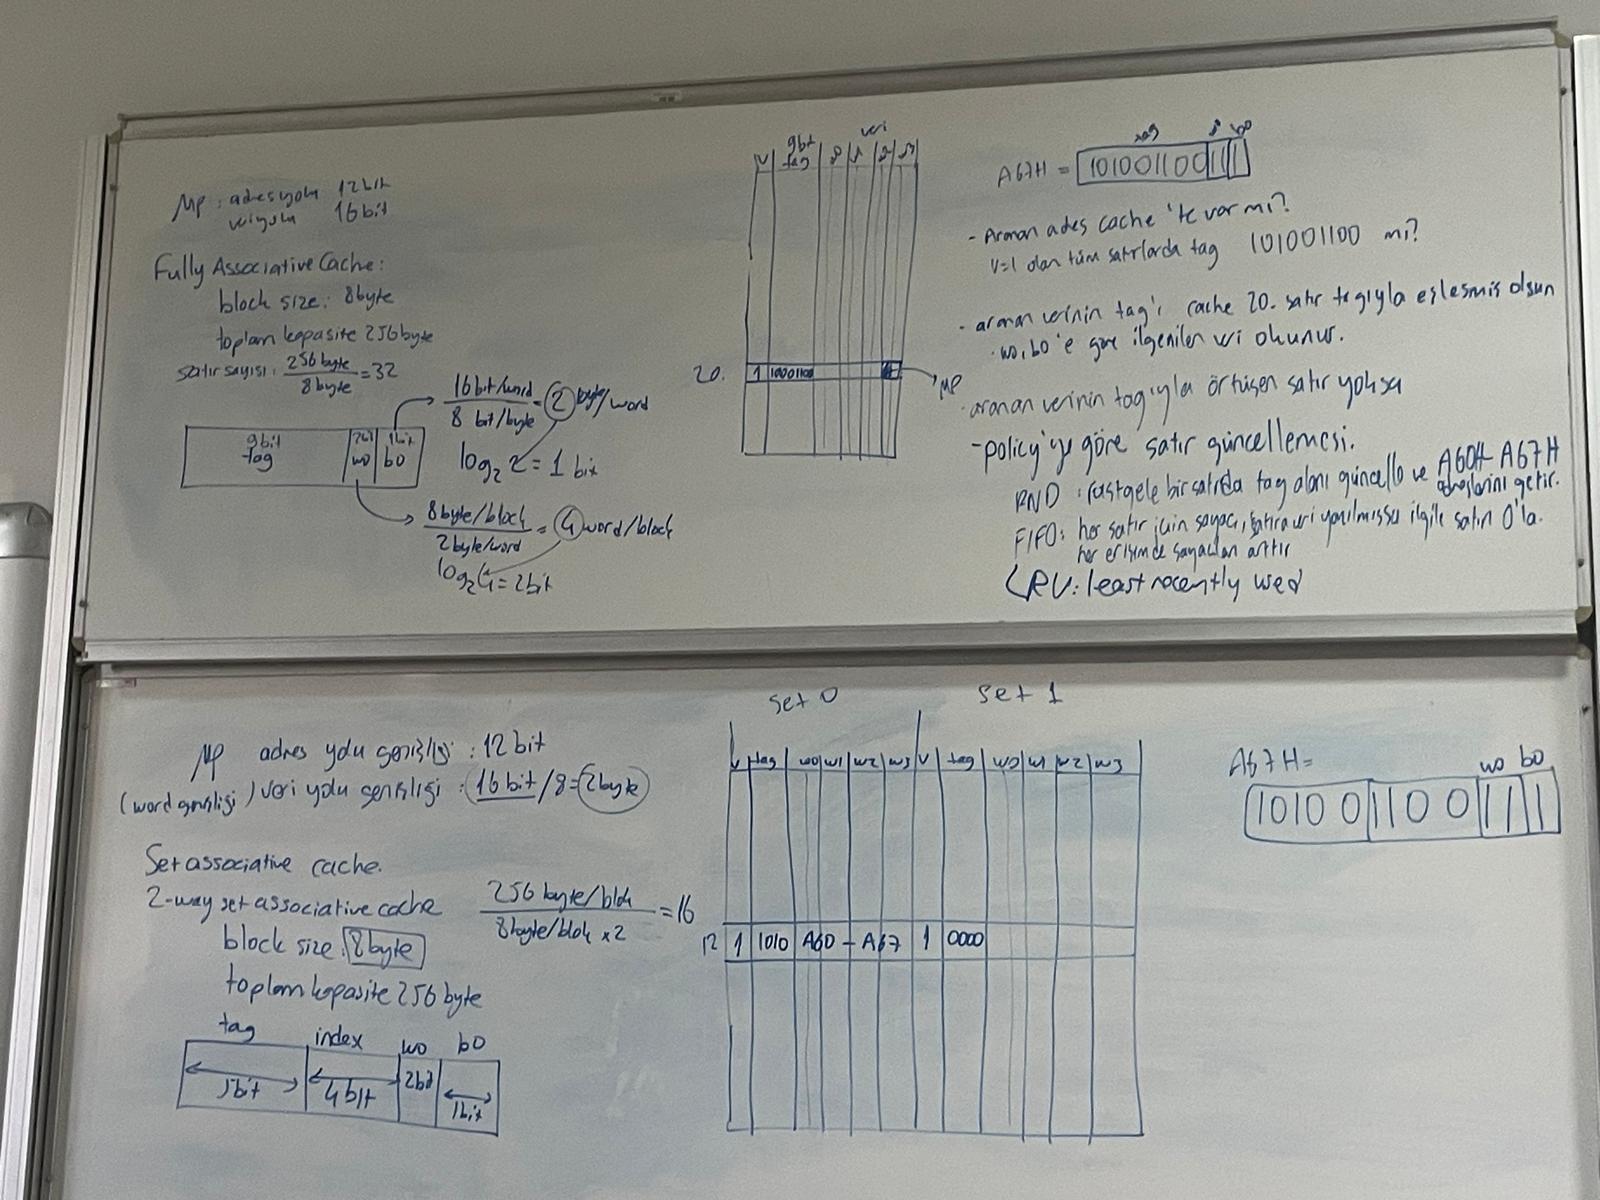 MP: adresyolu 12bit
veriyolu 16bit
Fully Associative Cache:
block size: 8byte
toplam kapasite 256byte
satır sayısı: 256 byte / 8 byte = 32
9bit tag 2bit wo 1bit bo
16bit/word / 8 bit/byte = 2 byte/word
log₂ 2 = 1 bit
8byte/block / 2byte/word = 4 word/block
log₂4 = 2bit
9bit veri
v tag
20. 1
MP
tag bo
A67H = 101001100 11 1
- Aranan adres cache'te var mı?
v=1 olan tüm satırlarda tag 101001100 mı?
- aranan verinin tag'i cache 20. satır tagıyla eşleşmiş olsun
. wo, bo'e göre ilgenilen veri okunur.
. aranan verinin tagıyla örtüşen satır yoksa
- policy'ye göre satır güncellemesi.
RND : rastgele bir satırda tag alanı güncelle ve A60H-A67H adreslerini getir.
FIFO: her satır için sayacı, satıra veri yazılmışsa ilgili satırı 0'la.
her erişimde sayaçları arttır
LRU: least recently used
Set 0 Set 1
MP adres yolu genişliği : 12 bit
(word genişliği) veri yolu genişliği : 16 bit/8 = 2byte
Set associative cache.
2-way set associative cache 256 byte/blok / 8byte/blok x2 = 16
block size: 8byte
toplam kapasite 256 byte
tag index wo bo
5bit 4bit 2bit 1bit
v tag w0 w1 w2 w3 v tag w0 w1 w2 w3
12 1 1010 A60 - A67 1 0000
A67H=
wo bo
10100 1100 11 1